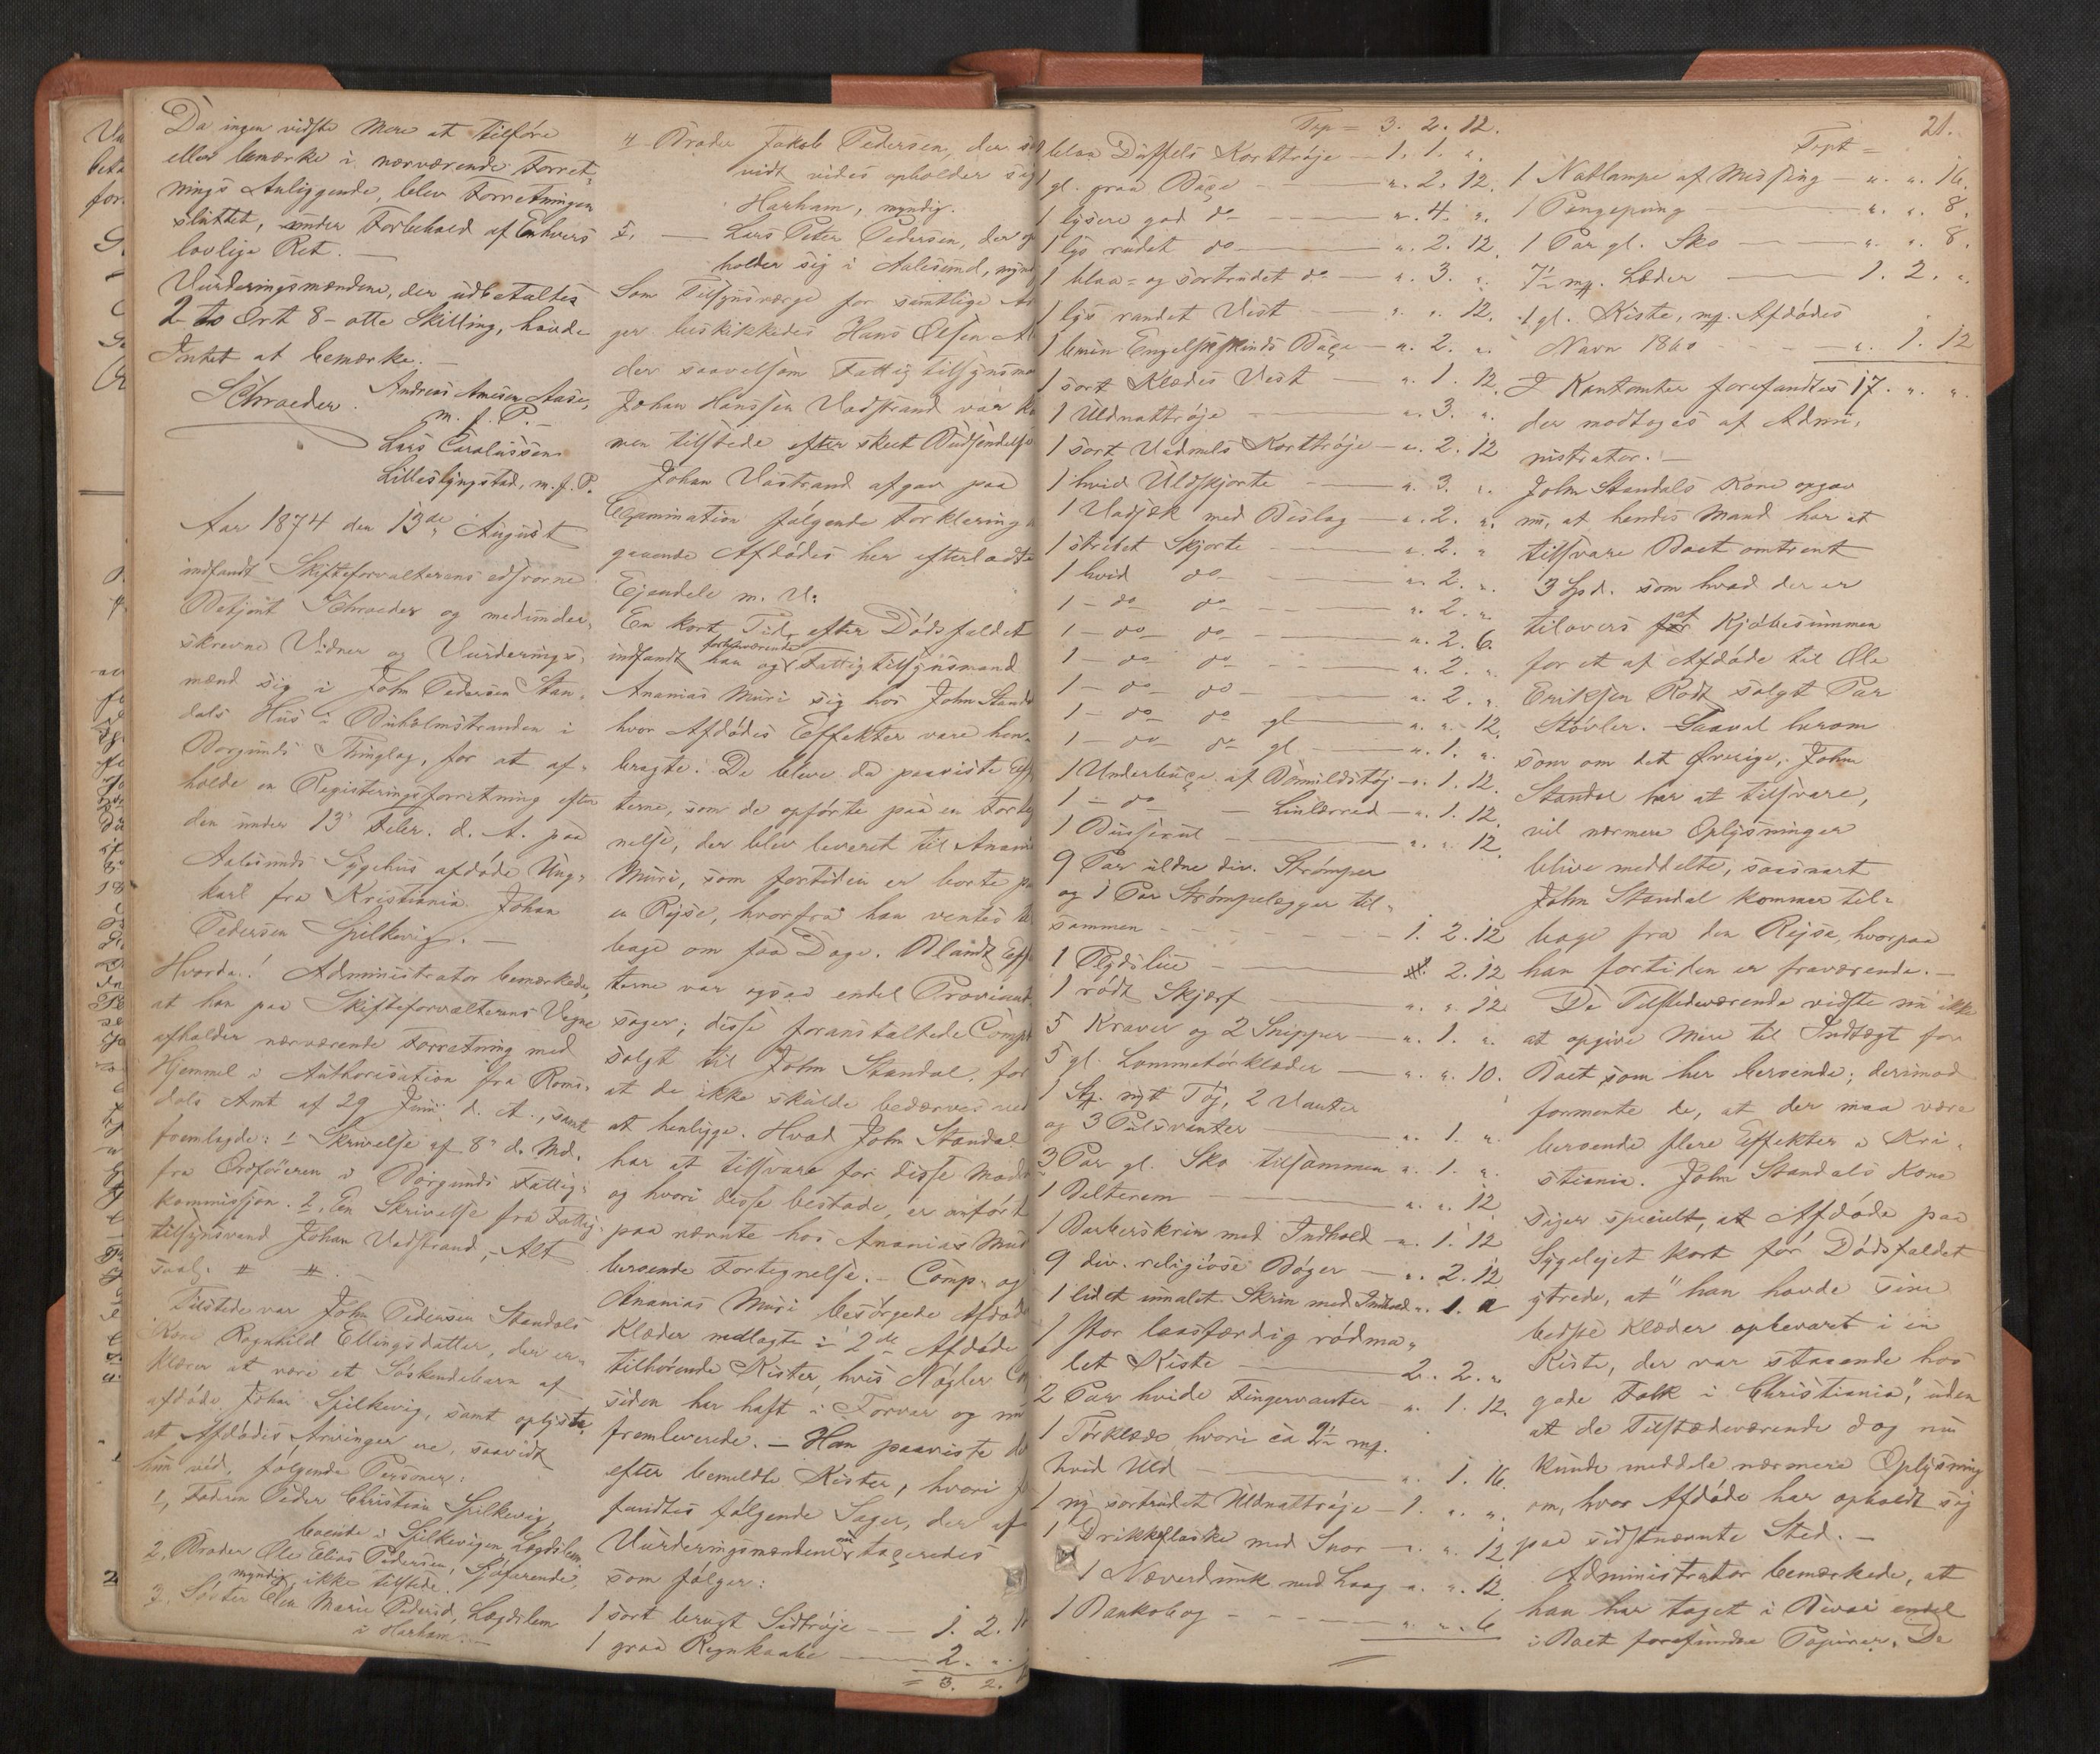 Da ingen vidste mere at tilføre
eller bemærke i nærværende Forret-
nings Anliggende, blev Forretningen
sluttet, under Forbehold af Enhvers
lovlige Ret. —
Vurderingsmændene, der udbetaltes
2 to Ort 8 - otte Skilling, havde
Intet at bemærke. —
Schroeder. Andreas Amesen Aase,
m. f. P. —
Lars Carolussen
Lilleslyngstad, m. f. P.
Aar 1874 den 13de August
indfandt Skifteforvalterens edsvorne
Betjent Schroeder og medunder-
skrevne Vidner og Vurderings-
mænd sig i John Pedersen Stan-
dals Hus i Buholmstranden i
Borgunds Thinglag, for at af-
holde en Registeringsforretning efter
den under 13 Febr. d. A. paa
Aalesunds Sygehus afdøde Ung-
karl fra Kristiania Johan
Pedersen Spilkevig. —
Hvorda! Administrator bemærkede,
at han paa Skifteforvalterens Vegne
afholder nærværende Forretning med
Hjemmel i Authorisation fra Roms-
dals Amt af 29 Juni d. A., samt
fremlagde: 1 Skrivelse af 8 d. Md.
fra Ordføreren i Borgunds Fattig-
kommission. 2, En Skrivelse fra Fattig-
tilsynsmand Johan Vadstrand, — Alt
saal. # #.
Tilstede var John Pedersen Standals
Kone Ragnhild Ellingsdatter, der er-
klærer at være et Søskendebarn af
afdøde Johan Spilkevig, samt oplyste,
at Afdødes Arvinger ere, saavidt
hun vid, følgende Personer:
1, Faderen Peder Christian Spilkevig,
boende i Spilkevigen Lægdslem.
2, Broder Ole Elias Pedersen, Sjøfarende,
myndig, ikke tilstede.
3, Søster Elen Marie Pedersd, Lægdslem
i Harham. —
4 Broder Jakob Pedersen, der
vidt vides opholder sig
Harham, myndig.
5. — Lars Peter Pedersen, der
holder sig i Aalesund,
Som Tilsynsværge for samtlige
ger beskikkedes Hans Olsen
der saavelsom Fattigtilsynsma
Johan Hanssen Vadstrand var
men tilstede efter skeet Budsendelse
Johan Vastrand afgav paa
Examination følgende Forklaring
gaaende Afdødes her efterladte
Ejendele m. V:
En kort Tid efter Dødsfaldet
indfandt han og forhenværende Fattigtilsynsmand
Ananias Muri sig hos John Stand
hvor Afdødes Effekter vare hen-
bragte. De bleve da paaviste
terne, som de opførte paa en Forteg
nelse, der blev leveret til Anani
Muri, som fortiden er borte
en Rejse, hvorfra han ventes
bage om faa Dage. Blandt
terne var ogsaa endel Proviant
sager; disse foranstaltede Comp
solgt til John Standal, for
at de ikke skulde bedærves ved
at henligge. Hvad John Standal
har at tilsvare for disse
og hvori disse bestode, er anført
paa nævnte hos Ananias Muri
beroende Fortegnelse. — Comp. og
Ananias Muri besørgede Afdødes
Klæder nedlagte i 2de Afdøde
tilhørende Kister, hvis Nøgler
siden har haft i Forvar og nu
fremleverede. — Han paaviste
efter bemeldte Kister, hvori
fandtes følgende Sager, der af
Vurderingsmændene taxeredes
som følger:
1 sort brugt Sidtrøje — 1. 2.
1 graa Regnkaabe — 2. "
= 3. 2.
Tsp = 3. 2. 12.
blaa Duffels Korttrøje — 1. 1. ".
1 gl. graa Buxe — ". 2. 12.
1 lysere god do — ". 4. ".
1 lys rudet do — ". 2. 12.
1 blaa- og sortrudet do — ". 3. ".
1 lys randet Vest — ". ". 12.
1 brun Engelskskinds Buxe — ". 2. ".
1 sort Klædes Vest — ". 1. 12.
1 Uldnattrøje — ". 3. ".
1 sort Vadmels Korttrøje — ". 2. 12
1 hvid Uldskjorte — ". 3. ".
1 Vadsæk med Beslag — ". 2. ".
1 stribet Skjorte — ". 2. "
1 hvid do — ". 2. ".
1 — do do — ". 2. ".
1 — do do — ". 2. 6.
1 — do do — ". 2. ".
1 — do do — ". 2. ".
1 — do do gl — ". ". 12.
1 — do do gl — ". 1. ".
1 Underbuxe af Bomuldstøj — ". 1. 12.
1 — do — Linlærred — ". 1. 12.
1 Busserul — ". ". 12.
9 Par uldne div. Strømper
og 1 Par Strømpelægger til-
sammen — 1. 2. 12
1 — 2. 12
1 rødt Skjærf — ". ". 12
5 Kraver og 2 Snipper — ". 1. ".
5 gl. Lommetørklæder — ". ". 10.
1 Stk. nyt Tøj, 2 Vanter
og 3 Pulsvanter — ". 1. ".
3 Par gl. Sko tilsammen ". 1. ".
1 Belterem — ". ". 12
1 Barberskrin med Indhold — ". 1. 12
9 div. religiøse Bøger — ". 2. 12
1 lidet umalet Skrin med Indhold ". 1. "
1 stor laasfærdig rødma-
let Kiste — 2. 2. "
2 Par hvide Fingervanter ". 1. 12.
1 Tørklæde, hvori ca 2½ mk.
hvid Uld — ". 1. 16.
1 ny sortrudet Uldnattrøje — 1. ". ".
1 Drikkeflaske med Snor — ". ". 12
1 Næverdunk med Laag — ". ". 12
1 Bankobog — ". ". 6
21.
Tspt =
1 Natlampe af Messing — ". ". 16.
1 Pengepung — ". ". 8.
1 Par gl. Sko — ". ". 8.
7½ mk. Læder — 1. 2. ".
1 gl. Kiste, mk. Afdødes
Navn 1860 — ". 1. 12
I Kontanter forefandtes 17. ". ".
der modtoges af Admi-
nistrator. —
John Standals Kone opgav
nu, at hendes Mand har at
tilsvare Boet omtrent
3 Spd. som hvad der er
tilovers af Kjøbesummen
for et af Afdøde til Ole
Eriksen Rødt solgt Par
Støvler. Saavel herom
som om det Øvrige, John
Standal har at tilsvare,
vil nærmere Oplysninger
blive meddelte, saasnart
John Standal kommer til-
bage fra den Rejse, hvorpaa
han fortiden er fraværende. —
De Tilstedeværende vidste nu ikke
at opgive Mere til Indtægt for
Boet som her beroende; derimod
formente de, at der maa være
beroende flere Effekter i Kri-
stiania. John Standals Kone
siger specielt, at Afdøde paa
Sygelejet kort før Dødsfaldet
ytrede, at "han havde sine
bedste Klæder opbevaret i en
Kiste, der var staaende hos
gode Folk i Christiania", uden
at de Tilstedeværende dog nu
kunde meddele nærmere Oplysning
om, hvor Afdøde har opholdt sig
paa sidstnævnte Sted. —
Administrator bemærkede, at
han har taget i Bevar endel
i Boet forefundne Papirer. De